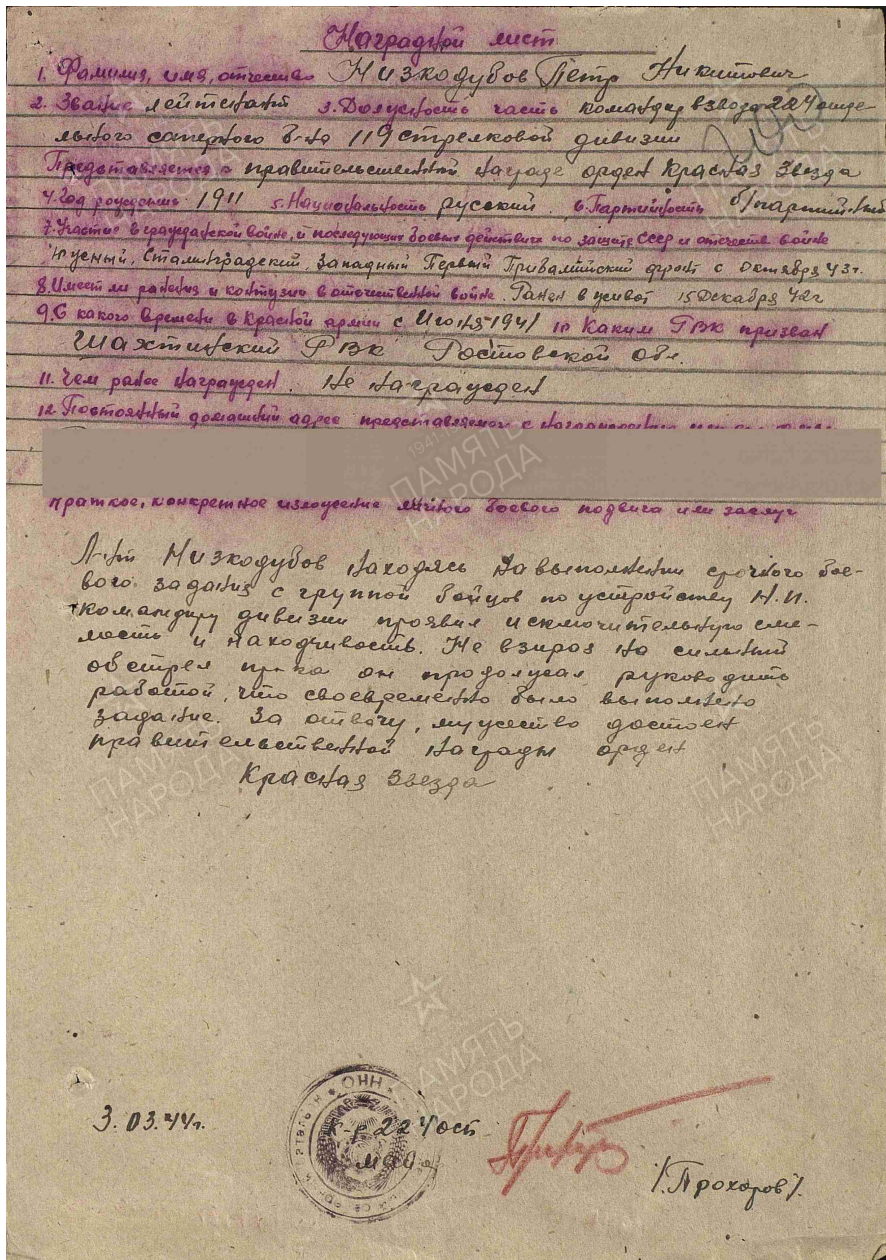 Наградной лист
1. Фамилия, имя, отчество Низкодубов Петр Никитович
2. Звание лейтенант 3. Должность часть командир взвода 224 отде-
льного саперного б-на 119 стрелковой дивизии
Представляется к правительственной награде орден Красная Звезда
4. Год рождения 1911 5. Национальность русский 6. Партийность б/партийный
7. Участие в гражданской войне, и последующих боевых действиях по защите СССР и отечеств войне
Южный, Сталинградский, Западный Первый Прибалтийский фронт с Октября 43 г.
8. Имеет ли ранения и контузии в отечественной войне. Ранен в живот 15 Декабря 42 г
9. С какого времени в Красной армии с Июня 1941 10 Каким РВК призван
Шахтинский РВК Ростовской обл.
11. Чем ранее награжден. Не награжден
12. Постоянный домашний адрес представляемого к
Краткое, конкретное изложение личного боевого подвига или заслуг
Л-нт Низкодубов находясь на выполнении срочного бое-
вого задания с группой бойцов по устройству Н.П.
командиру дивизии проявил исключительную сме-
лость и находчивость. Не взираз на сильный
обстрел пр-ка он продолжал руководить
работой, что своевременно было выполнено
задание. За отвагу, мужество достоен
правительственной награды орден
Красная Звезда
3.03.44 г.
К-р 224 осп
/Прохоров/.
ПАМЯТЬ
НАРОДА